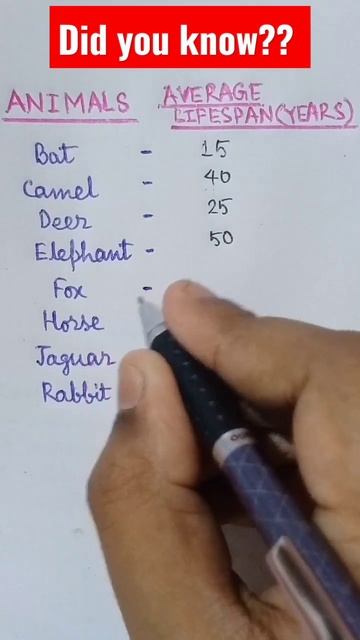 Did you know??
ANIMALS AVERAGE
LIFESPAN(YEARS)
Bat - 15
Camel - 40
Deer - 25
Elephant - 50
Fox -
Horse
Jaguar
Rabbit